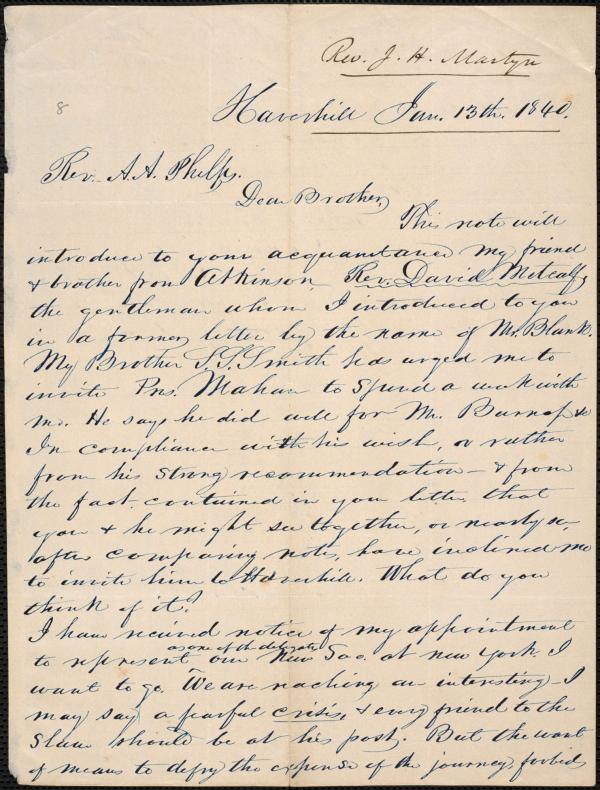 Rev. J. H. Martyn
8
Haverhill Jan. 13th. 1840.
Rev. A. A. Phelps.
Dear Brother,
This note will
introduce to your acquaintance my friend
& brother from Atkinson, Rev. David Metcalf,
the gentleman whom I introduced to you
in a former letter by the name of Mr. Blank.
My Brother T. S. Smith has urged me to
invite Prs. Mahan to spend a week with
me. He says he did well for Mr. Burnap &c
In compliance with his wish, or rather
from his strong recommendation – & from
the fact contained in your letter, that
you & he might see together, or nearly so,
after comparing note, have inclined me
to invite him to Haverhill. What do you
think of it?
I have received notice of my appointment
as one of the delegates
to represent our New Soc. at New York. I
want to go. We are reaching an interesting – I
may say a fearful crisis, & every friend to the
Slave should be at his post. But the want
of means to defray the expense of the journey, forbids